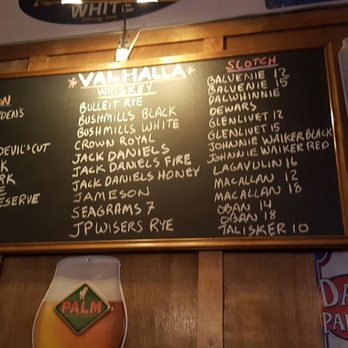 WHITE
ON
DEN'S
DEVIL'S CUT
RK
SERVE
*VALHALLA*
WHISKEY
BULLEIT RYE
BUSHMILLS BLACK
BUSHMILLS WHITE
CROWN ROYAL
JACK DANIELS
JACK DANIELS FIRE
JACK DANIELS HONEY
JAMESON
SEAGRAMS 7
JP WISERS RYE
SCOTCH
BALVENIE 12
BALVENIE 15
DALWHINNIE
DEWARS
GLENLIVET 12
GLENLIVET 15
JOHNNIE WALKER BLACK
JOHNNIE WALKER RED
LAGAVULIN 16
MACALLAN 12
MACALLAN 18
OBAN 14
OBAN 18
TALISKER 10
PALM
DA
PA